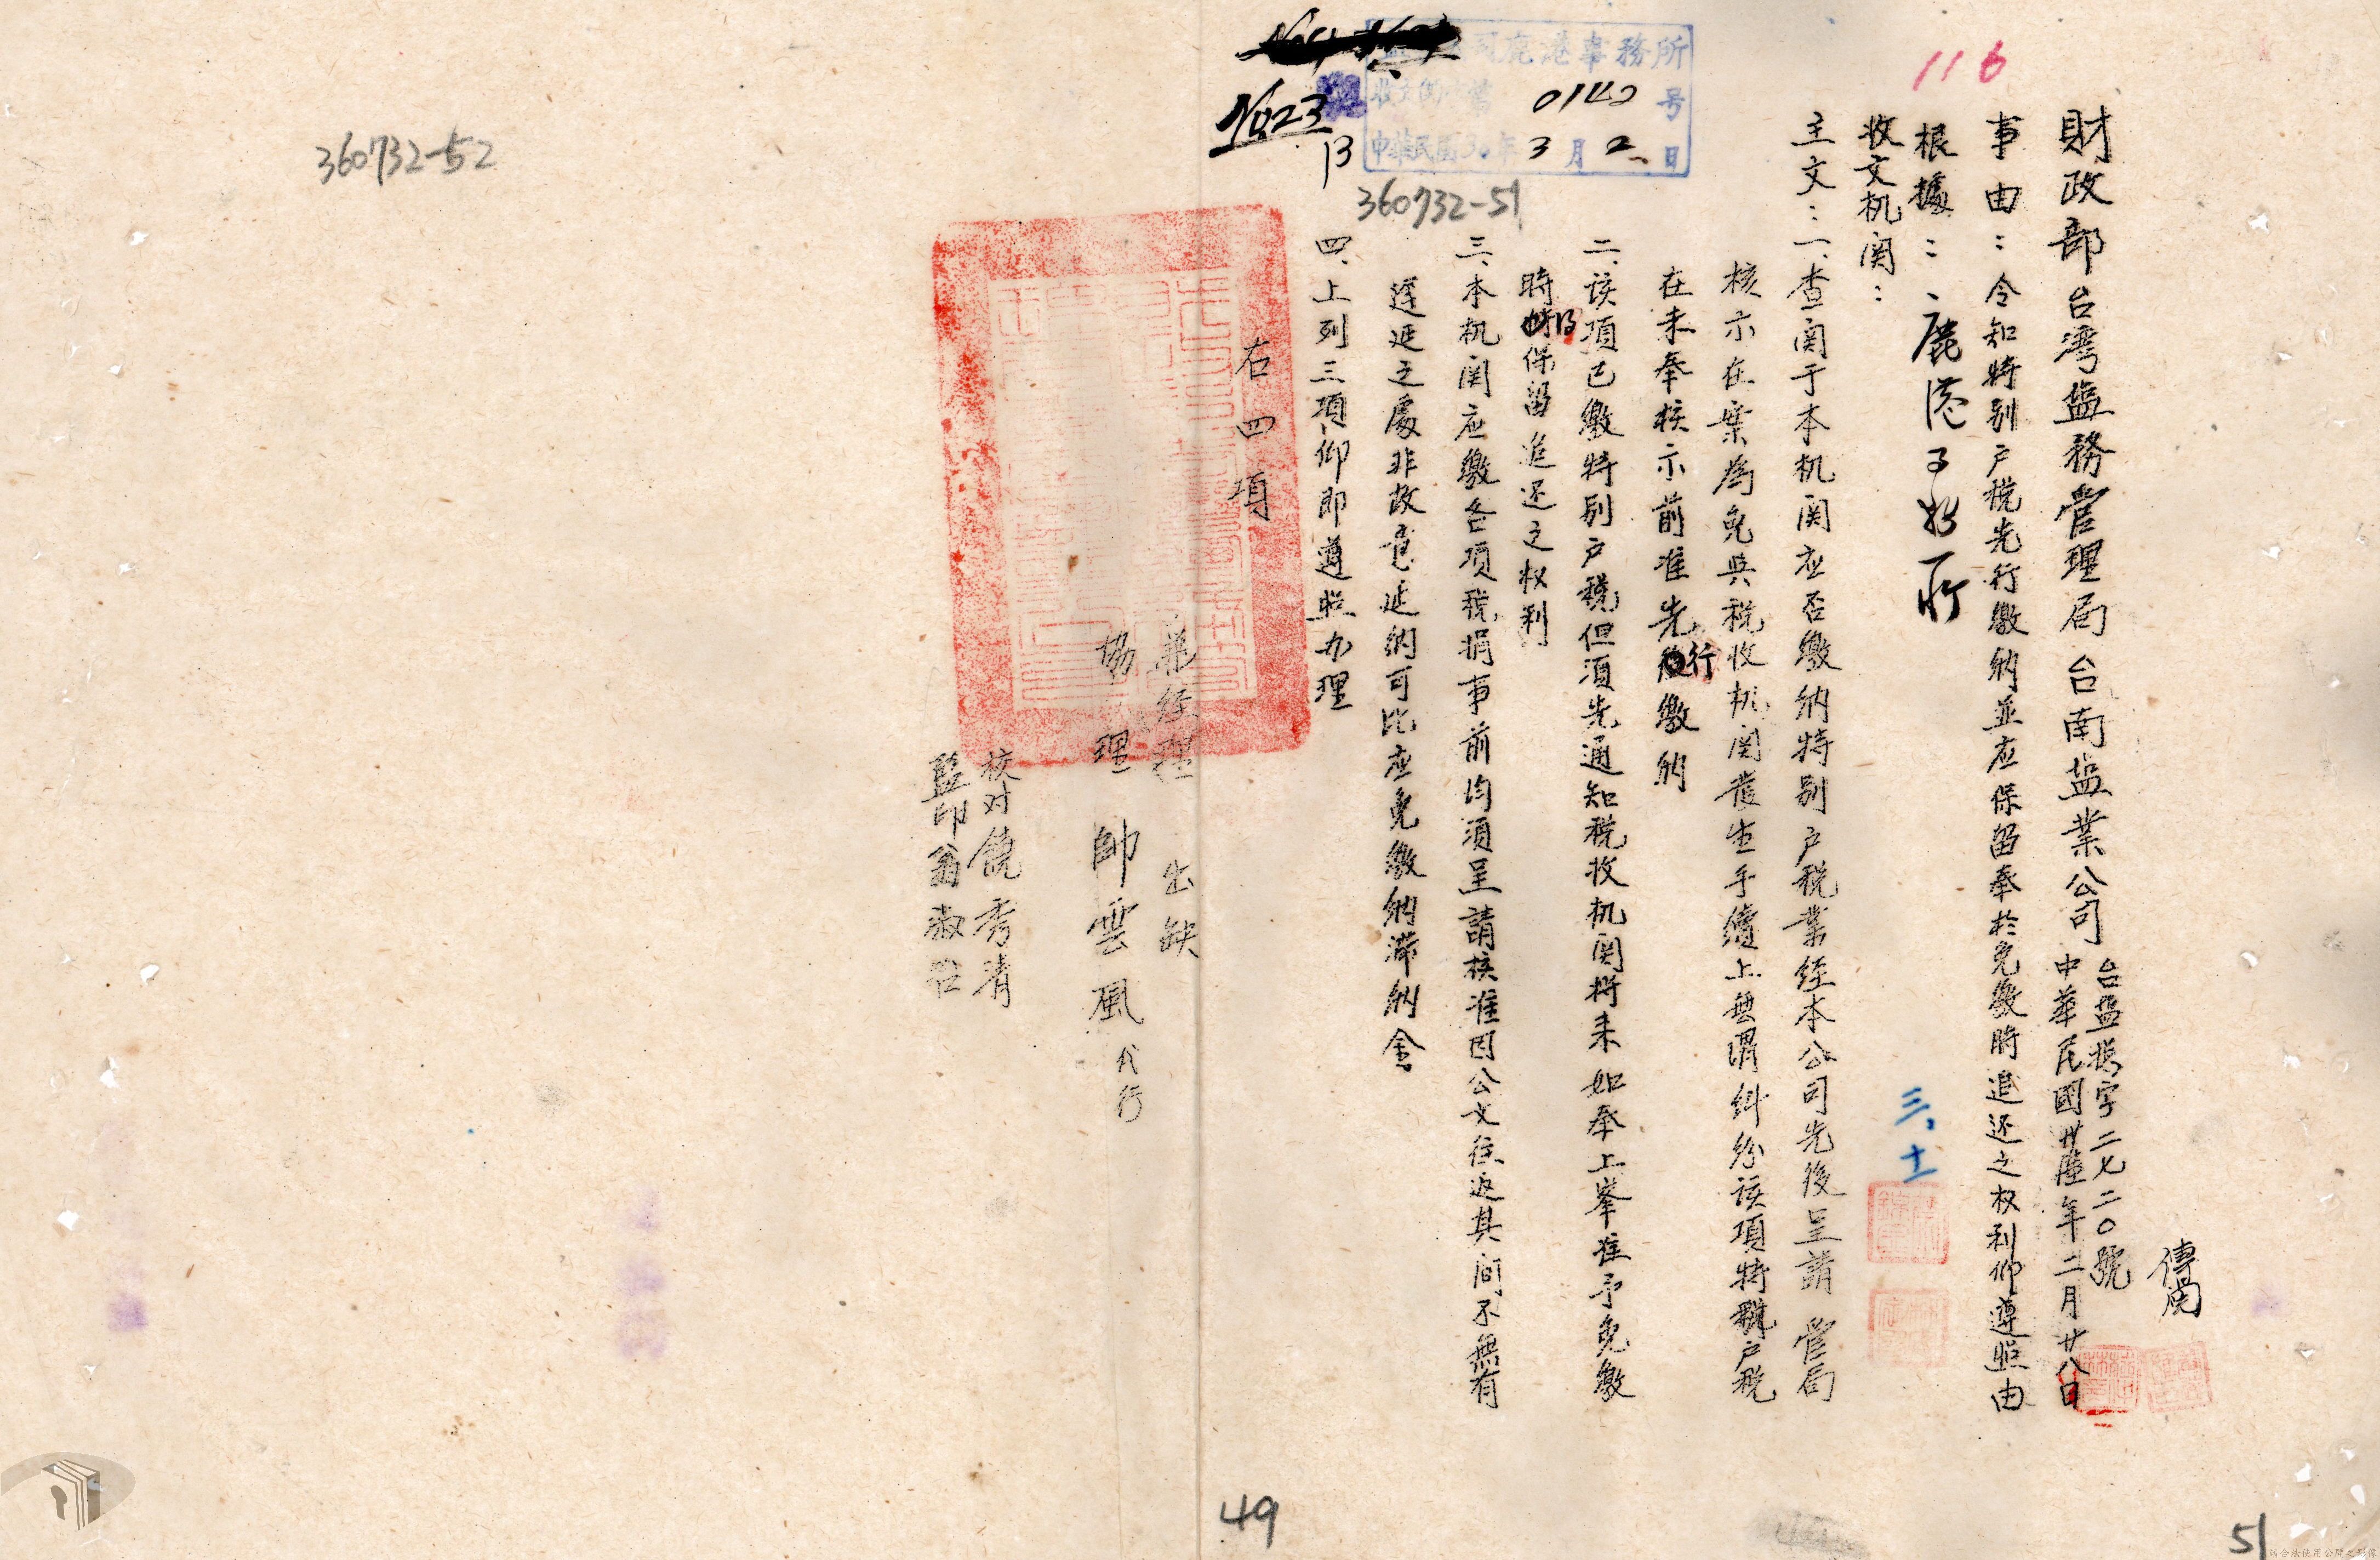 傳閱
財政部台湾盐務管理局台南盐業公司
台盐揆字二七二〇號
中華民國卅陸年二月廿八日
事由：令知特别户税先行繳納並应保留奉於免繳時追还之权利仰遵照由
根據：
鹿港子務所
收文机関：
主文：一、查関于本机関应否繳納特别户税業经本公司先後呈請 管局
核示在案為免與税收机関發生手續上無谓纠纷该項特别户税
在未奉核示前准先行繳納
二、该項已繳特别户税但須先通知税收机関将来如奉上峯准予免繳
時得保留追还之权利
三、本机関应繳各項税捐事前均須呈請核准因公文往返其间不無有
遲延之處非故意延納可比应免繳納滞納金
四、上列三項仰即遵照办理
右四項
兼经理 出缺
協理 帥雲風 代行
校对饒秀清
監印翁淑
116
三、十
司鹿港事務所
0140号
中華民國36年3月2日
No23
13
360732-51
360732-52
49
51
請合法使用公開之影像